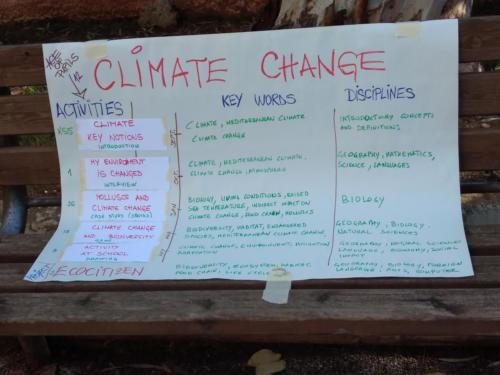 AGE OF PUPILS
CLIMATE CHANGE
ACTIVITIES
KEY WORDS
DISCIPLINES
CLIMATE
KEY NOTIONS
INTRODUCTION
CLIMATE, MEDITERRANEAN CLIMATE,
CLIMATE CHANGE
INTRODUCTORY CONCEPTS
AND DEFINITIONS
MY ENVIROMENT
IS CHANGED
INTERVIEW
CLIMATE, MEDITERRANEAN CLIMATE,
CLIMATE CHANGE,
GEOGRAPHY, MATHEMATICS,
SCIENCE, LANGUAGES
MOLLUSCS AND
CLIMATE CHANGE
BIOLOGY, LIVING CONDITIONS, RAISED
SEA TEMPERATURE, INDIRECT IMPACT ON
CLIMATE CHANGE, FOOD CHAIN, MOLLUSCS
JAN
BIOLOGY
CLIMATE CHANGE
AND BIODIVERSITY
GAME
BIODIVERSITY, HABITAT, ENDANGERED
SPECIES, MEDITERRANEAN CLIMATE CHANGE,
GEOGRAPHY, BIOLOGY,
NATURAL SCIENCES
ACTIVITY
AT SCHOOL
CLIMATE CHANGE, ENVIRONMENT, MITIGATION
ADAPTATION
GEOGRAPHY, NATURAL SCIENCES
LANGUAGE, ECONOMY, SOCIAL
IMPACT
ECOCITIZEN
BIODIVERSITY, ECOSYSTEM, HABITAT,
FOOD CHAIN, LIFE CYCLE
GEOGRAPHY, BIOLOGY, FOREIGN
LANGUAGE, ARTS, COMPUTER